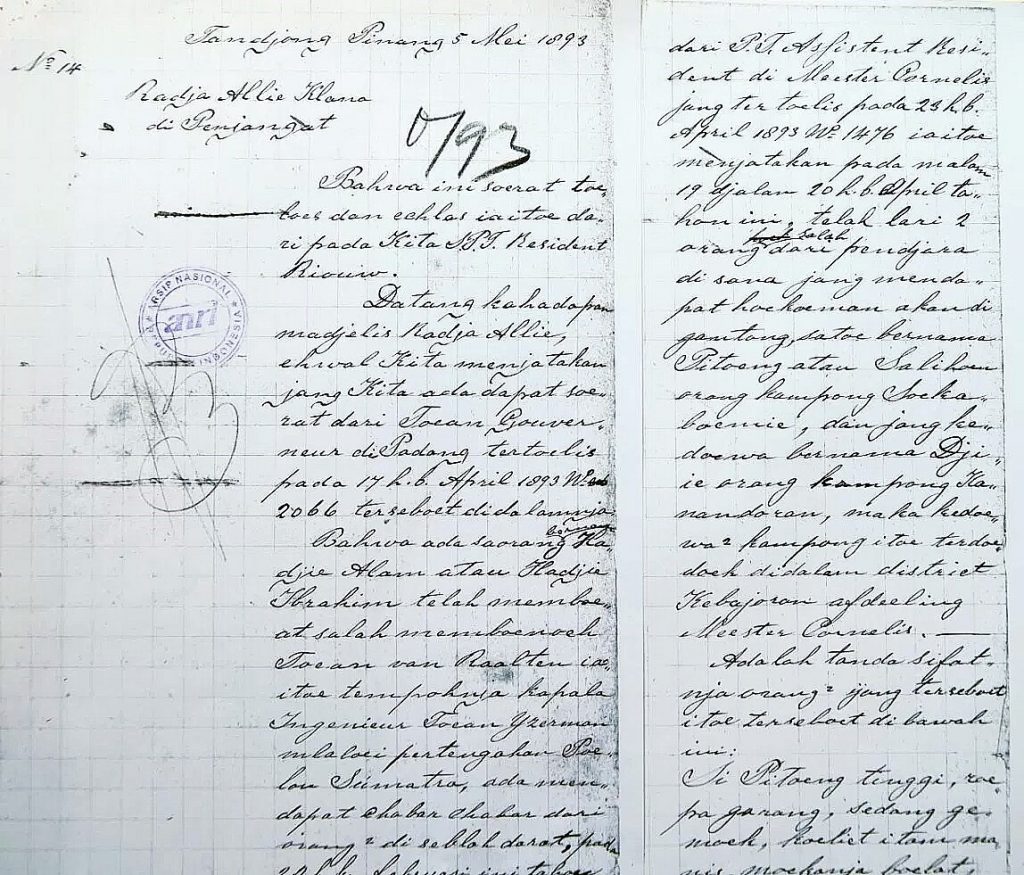 Tandjong Pinang 5 Mei 1893
No 14
Radja Allie Klana
di Penjangat
0/93
Bahwa ini soerat toe„
loes dan echlas iaitoe da„
ri pada Kita S.P.T. Resident
Riouw.
Datang kahadapan
madjelis Radja Allie,
ehwal Kita menjatakan
jang Kita ada dapat soe„
rat dari Toean Gouver„
neur di Padang tertoelis
pada 17 h.b. April 1893 No
2066 terseboet didalamnja
Bahwa ada saorang bernama Ha„
djie Alam atau Hadjie
Ibrahim telah memboe„
at salah memboenoeh
Toean van Raalten ia„
itoe tempohnja kapala
Ingenieur Toean Yzerman
mlaloei pertengahan Poe„
lou Sumatra, ada men„
dapat chabar chabar dari
orang² di seblah darat, pada
h.b. Februari ini tahon
ARSIP NASIONAL
anri
REPUBLIK INDONESIA
dari P.T. Assistent Resi„
dent di Meester Cornelis
jang ter toelis pada 23 h.b.
April 1893 No 1476 iaitoe
menjatakan pada malam
19 djalan 20 h.b. April ta„
hon ini, telah lari 2
orang salah dari pendjara
di sana jang menda„
pat hoekoeman akan di
gantong, satoe bernama
Pitoeng atau Salihoen
orang kampong Soeka„
boemie, dan jang ke„
doewa bernama Dji„
ie orang kampong Ka„
nandoran, maka kedoe„
wa² kampong itoe terdoe„
doek didalam district
Kebajoran afdeeling
Meester Cornelis. —
Adalah tanda sifat„
nja orang² jang terseboet
itoe terseboet di bawah
ini:
Si Pitoeng tinggi, roe„
pa garang, sedang ge„
moek, koeliet itam ma„
nis, moekanja boelat,